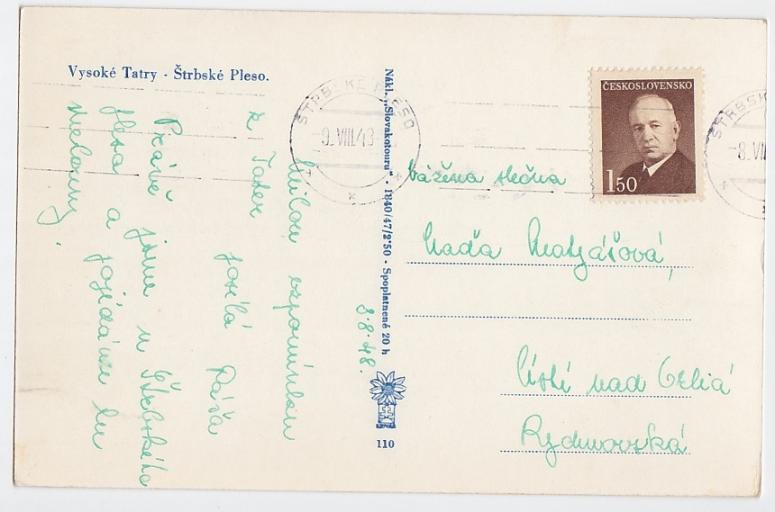 Vysoké Tatry - Štrbské Pleso.
8.8.48.
Milou vzpomínkou
z Tater posílá Dáša
Právě jsme u Štrbského
plesa a pojídáme tu
melouny.
Nákl. „Slovakotouru" - 1840/47/2'50 - Spoplatnené 20 h
110
ŠTRBSKÉ PLESO
9.VIII.48
ČESKOSLOVENSKO
1.50
ŠTRBSK
8.VI
Vážená slečna
Naďa Matyášová,
Ústí nad Orlicí